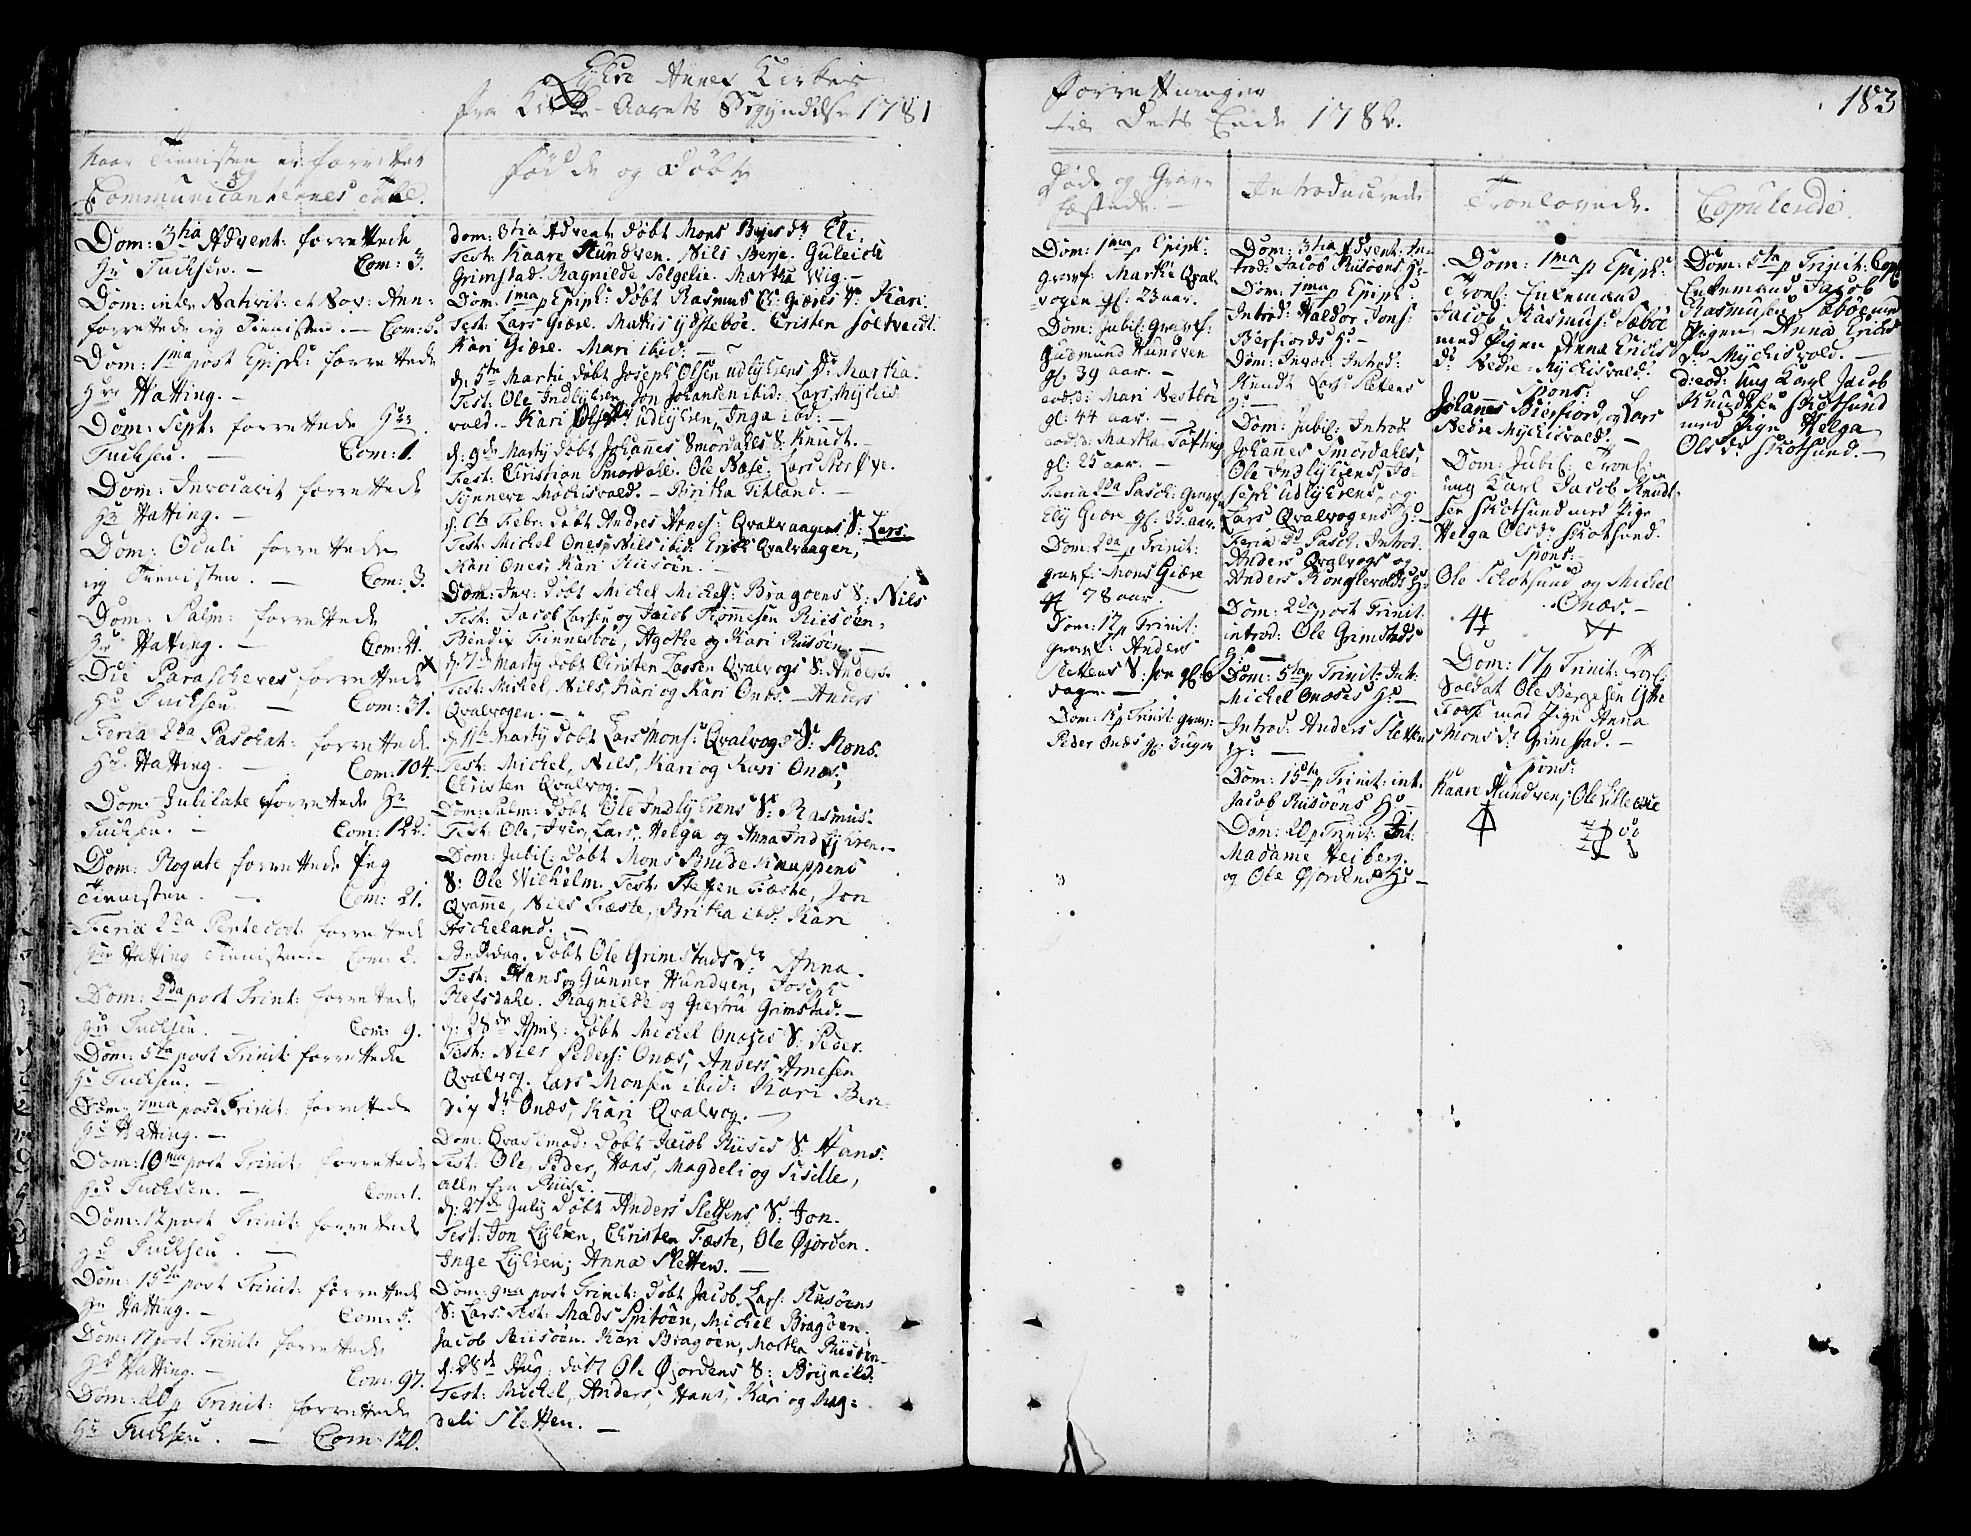 Lÿkre Annex Kirkes
fra Kirke-Aarets Begyndelse 1781
Naar Tienisten er forrettet
og
Communicanternes Tall.
Dom: 3tia Advent: forrettede
Hr Fuchsen. — Com: 3.
Dom: inter Nativit: et Nov: Ann:
forrettede ieg Tienisten. — Com: 5.
Dom: 1ma post Epiph: forrettede
Hrr Hatting. —
Dom: Sept: forrettede Hrr
Fuchsen. — Com: 1.
Dom: Invocavit forrettede
Hr Hatting. —
Dom: Oculi forrettede
ieg Tienisten. — Com: 3.
Dom: Palm: forrettede
Hr Hatting. — Com: 21.
Die Parascheves forrettede
Hr Fuchsen. — Com: 31.
Feria 2da Paschat: forrettede
Hr Hatting. — Com: 104.
Dom: Jubilate forrettede Hr
Fuchsen. — Com: 122.
Dom: Rogate forrettede Jeg
Tienisten. — Com: 21.
Feria 2da Pentecost: forrettede
Hr Hatting Tienisten. Com: 2.
Dom: 2da post Trinit: forrettede
Hr Fuchsen. — Com: 9.
Dom: 5ta post Trinit: forrettede
Hr Fuchsen. —
Dom: 7ma post Trinit: forrettede
Hr Hatting. —
Dom: 10ma post Trinit: forrettede
Hr Fuchsen. — Com: 1.
Dom: 12 post Trinit: forrettede
Hr Fuchsen. —
Dom: 15ta post Trinit: forrettede
Hr Hatting. — Com: 5.
Dom: 17 post Trinit: forrettede
Hr Hatting. — Com: 97.
Dom: 20 p Trinit: forrettede
Hr Fuchsen. — Com: 120.
Fødde og Døbte
Dom: 3tia Advent døbt Mons Berjes Dr Eli.
Test: Kaare Hundven. Nils Berje. Guleich
Grimstad. Ragnilde Solgelie. Martha Vig. —
Dom: 1ma p Epiph: døbt Rasmus Chr: Giæres Dr Kari
Test: Lars Giære. Mathis Ydsteboe. Cristen Soltveidt.
Kari Giære. Mari ibid: —
d. 5te Martii døbt Joseph Olsen udlykrens Dr Martha.
Test: Ole Indlykren, Jon Johansen ibid: Lars Mychis
vold. Kari Olsdtr udlykren, Inga ibid: —
d: 9de Marty døbt Johannes Smørdals S: Knudt. —
Test: Christian Smørdale. Ole Næse. Lars Stor Øye.
Synneve Mychisvald. — Britha Titland. —
d: 6te Febr: døbt Andres Aones: Qvalvaagens S: Lars.
Test: Michel Ones Nils ibid: Erich Qvalvaagen,
Kari Ones, Kari Riisøen. —
Dom: Inv: døbt Michel Michels: Bragøens S: Nils
Test: Jacob Larsen og Jacob Tommesen Riisøen,
Bendix Tinnesboe, Agothe og Kari Riisøen. —
d: 7de Marty døbt Christen Larsen Qvalvogs S: Anders.
Test: Michel, Nils, Kari og Kari Onæs. — Anders
Qvalvogen. —
d. 11te Marty døbt Lars Mons: Qvalvogs S: Mons.
Test: Michel, Nils, Kari og Kari Onæs,
Christen Qvalvog. —
Dom: Palm: døbt Ole Indlykrens S: Rasmus.
Test: Ole, Iver, Lars, Helga og Anna Indlykren. —
Dom: Jubil: døbt Mons Brudeknappens
S: Ole Wilhelm. Test: Steffen Fæste, Jon
Qvamme, Nils Fæste, Britha ibid: Kari
Ascheland. —
Bededag. døbt Ole Grimstads Dr: Anna.
Test: Hans og Gunner Hundven, Joseph
Refsdahl. Ragnilde og Giertru Grimstad. —
d: 28de April: døbt Michel Onæses S: Peder.
Test: Niels Peders: Onæs, Anders Arnesen
Qvalvog. Lars Monsen ibid: Kari Ben-
dix Dr Onæs, Kari Qvalvog. —
Dom: Qvasimod: døbt Jacob Riises S: Hans:
Test: Ole, Peder, Hans, Magdeli og Sisille,
alle fra Riise. —
d: 27de July døbt Anders Slettens S: Jon.
Test: Jon Lykren, Christen Fæste, Ole Øjorden.
Inge Lykren; Anna Sletten. —
Dom: 9na post Trinit: døbt Jacob Lars: Riisøens
S: Lars. Test: Mads Spitøen, Michel Bragøen.
Jacob Riisøen. Kari Bragøen, Martha Riisøen.
d: 28de Aug: døbt Ole Øjordens S: Brynild.
Test: Michel, Anders, Hans, Kari og Mag-
deli Sletten. —
Forretninger
til Dets Ende 1782.
183
Døde og Grav-
fæstede. —
Dom: 1ma p Epiph:
gravf: Marthe Qval
vogen gl: 23 aar.
Dom: Jubil: Gravf:
Gudmund Hundven
gl. 39 aar. —
eod: d: Mari Nestbøe
gl: 44 aar. —
eod: d: Martha Tofting
gl: 25 aar. —
Feria 2da Pasch: Gravf:
Elj Giære gl: 35 aar.
Dom: 2da p Trinit:
gravf: Mons Giære
gl 78 aar.
Dom: 12 p Trinit:
gravf: Anders
Slettens S: Jon gl: 6
dage. —
Dom: 15 p Trinit: grav:
Peder Onæs gl: 3 uger
Introducerede
Dom: 3tia Advent: In-
trod: Jacob Riisøens Hu —
Dom: 1ma p Epiph:
Introd: Haldor Jons:
Berfiords Hu —
Dom: Invoc: Introd:
Knudt Lars: Slettens
Hu —
Dom: Jubil: Introd
Johannes Smørdales,
Ole Indlykrens, Jo-
seph Udlykrens, og
Lars Qvalvogens Hu —
Feria 2d Pasch: Introd:
Anders Qvalvogs og
Anders Konglevolds Hu:
Dom: 2da post Trinit:
introd: Ole Grimstads
Hu —
Dom: 5ta p Trinit: Int:
Michel Onæses Hu —
Introd: Anders Slettens
Hu: —
Dom: 15ta p Trinit: int:
Jacob Riisøens Hu —
Dom: 20 p Trinit: Int.
Madame Heiberg.
og Ole Øjordens Hu —
Troelovede.
Dom: 1ma p Epiph:
Troel: Enkemand
Jacob Rasmus: Sæbøe
med Pigen Anna Erichs
Dr Nedre-Mychisvald.
Spons:
Johannes Bierfiord og Lars
Nedre Mychisvald. —
Dom: Jubil: Troel:
ung Karl Jacob Knudt-
sen Skotsund med Pige
Helga Ols Dr: Skotsund.
Spons —
Ole Skotsund og Michel
Onæs. —
Dom: 17 p Trinit: Troel:
Soldat Ole Bergesen Ytte
Forse med Pige Anna
Mons Dr Grimstad. —
Spons:
Kaare Hundven, Ole Lille
Copulerede.
Dom: 5ta p Trinit: Copul
Enkemand Jacob
Rasmusen Sæbøe med
Pigen Anna Erichs
Dr Mychisvald. —
d: eod: Ung Karl Jacob
Knudtsen Skotsund
med Pige Helga
Ols Dr Skotsund. —